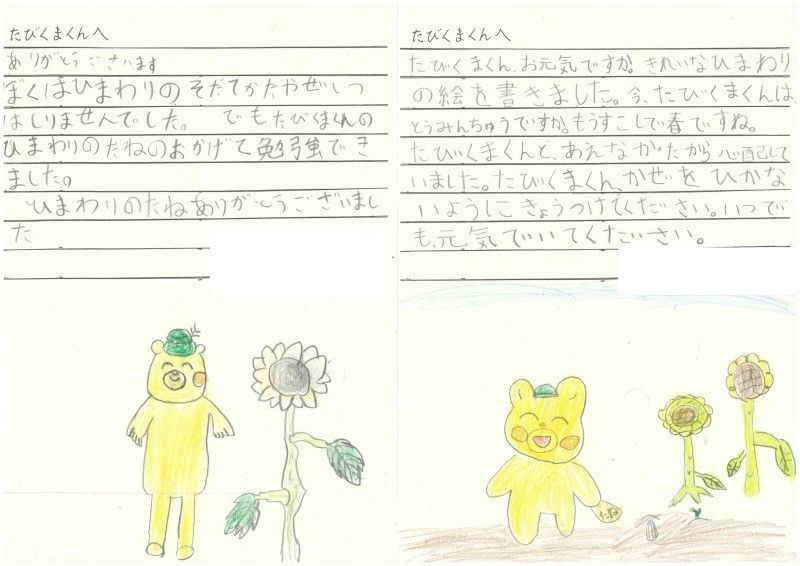 たびくまくんへ
ありがとうございます
ぼくはひまわりのそだてかたやぜしつ
はしりませんでした。 でもたびくまくんの
ひまわりのたねのおかげで勉強でき
ました。
ひまわりのたねありがとうございまし
た
たびくまくんへ
たびくまくん、お元気ですか。きれいなひまわり
の絵を書きました。今、たびくまくんは、
とうみんちゅうですか。もうすこしで春ですね。
たびくまくんと、あえなかったから、心配して
いました。たびくまくん、かぜをひかな
いようにきょうつけてください。いつで
も、元気でいてください。
たね